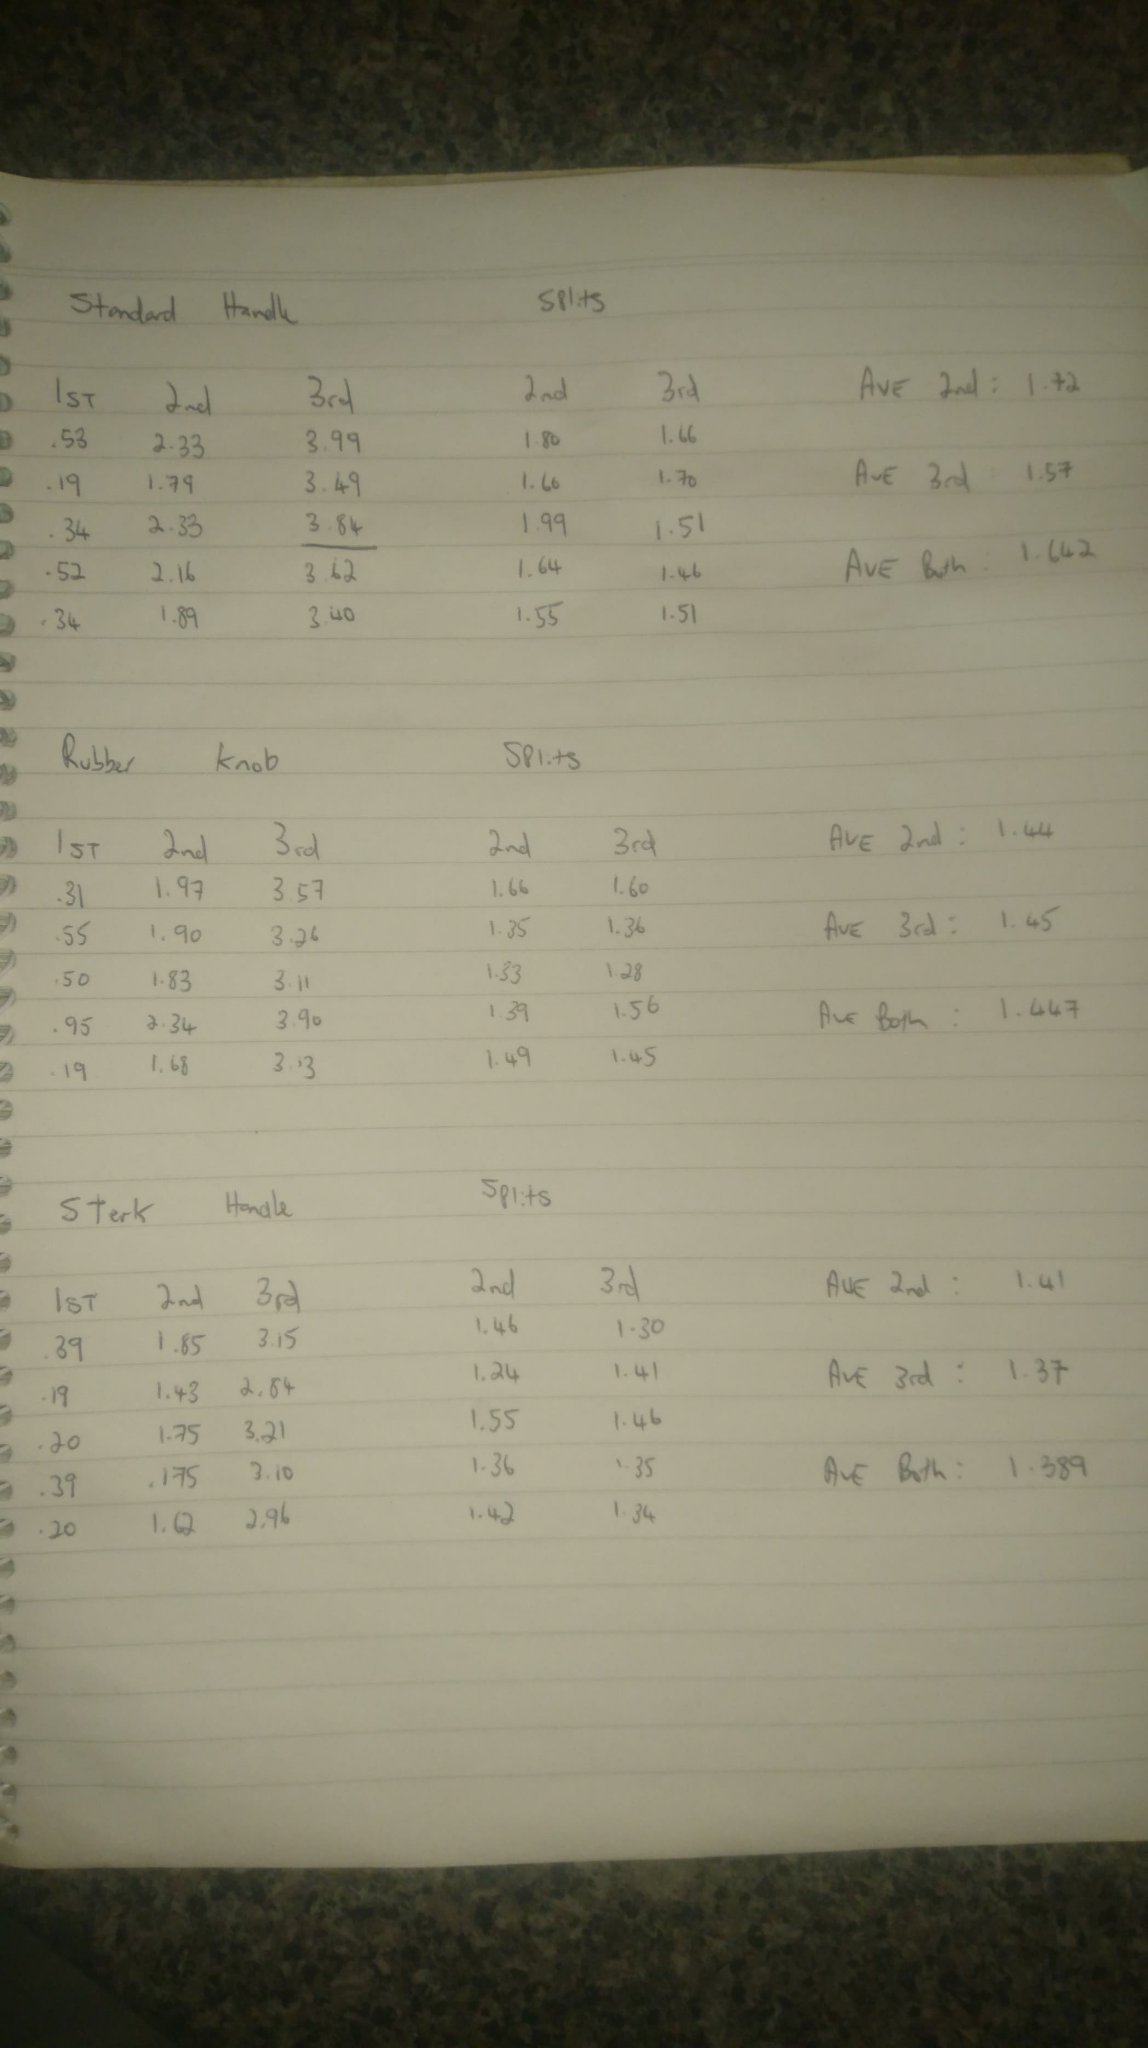 Standard Handle Splits
1ST 2nd 3rd 2nd 3rd AVE 2nd: 1.72
.53 2.33 3.99 1.80 1.66
.19 1.79 3.49 1.60 1.70 AVE 3rd: 1.57
.34 2.33 3.84 1.99 1.51
.52 2.16 3.62 1.64 1.46 AVE Both: 1.642
.34 1.89 3.40 1.55 1.51
Rubber Knob Splits
1ST 2nd 3rd 2nd 3rd AVE 2nd: 1.44
.31 1.97 3.57 1.66 1.60
.55 1.90 3.26 1.35 1.36 AVE 3rd: 1.45
.50 1.83 3.11 1.33 1.28
.95 2.34 3.90 1.39 1.56 AVE Both: 1.447
.19 1.68 3.13 1.49 1.45
Sterk Handle Splits
1ST 2nd 3rd 2nd 3rd AVE 2nd: 1.41
.39 1.85 3.15 1.46 1.30
.19 1.43 2.84 1.24 1.41 AVE 3rd: 1.37
.20 1.75 3.21 1.55 1.46
.39 .175 3.10 1.36 1.35 AVE Both: 1.389
.20 1.62 2.96 1.42 1.34